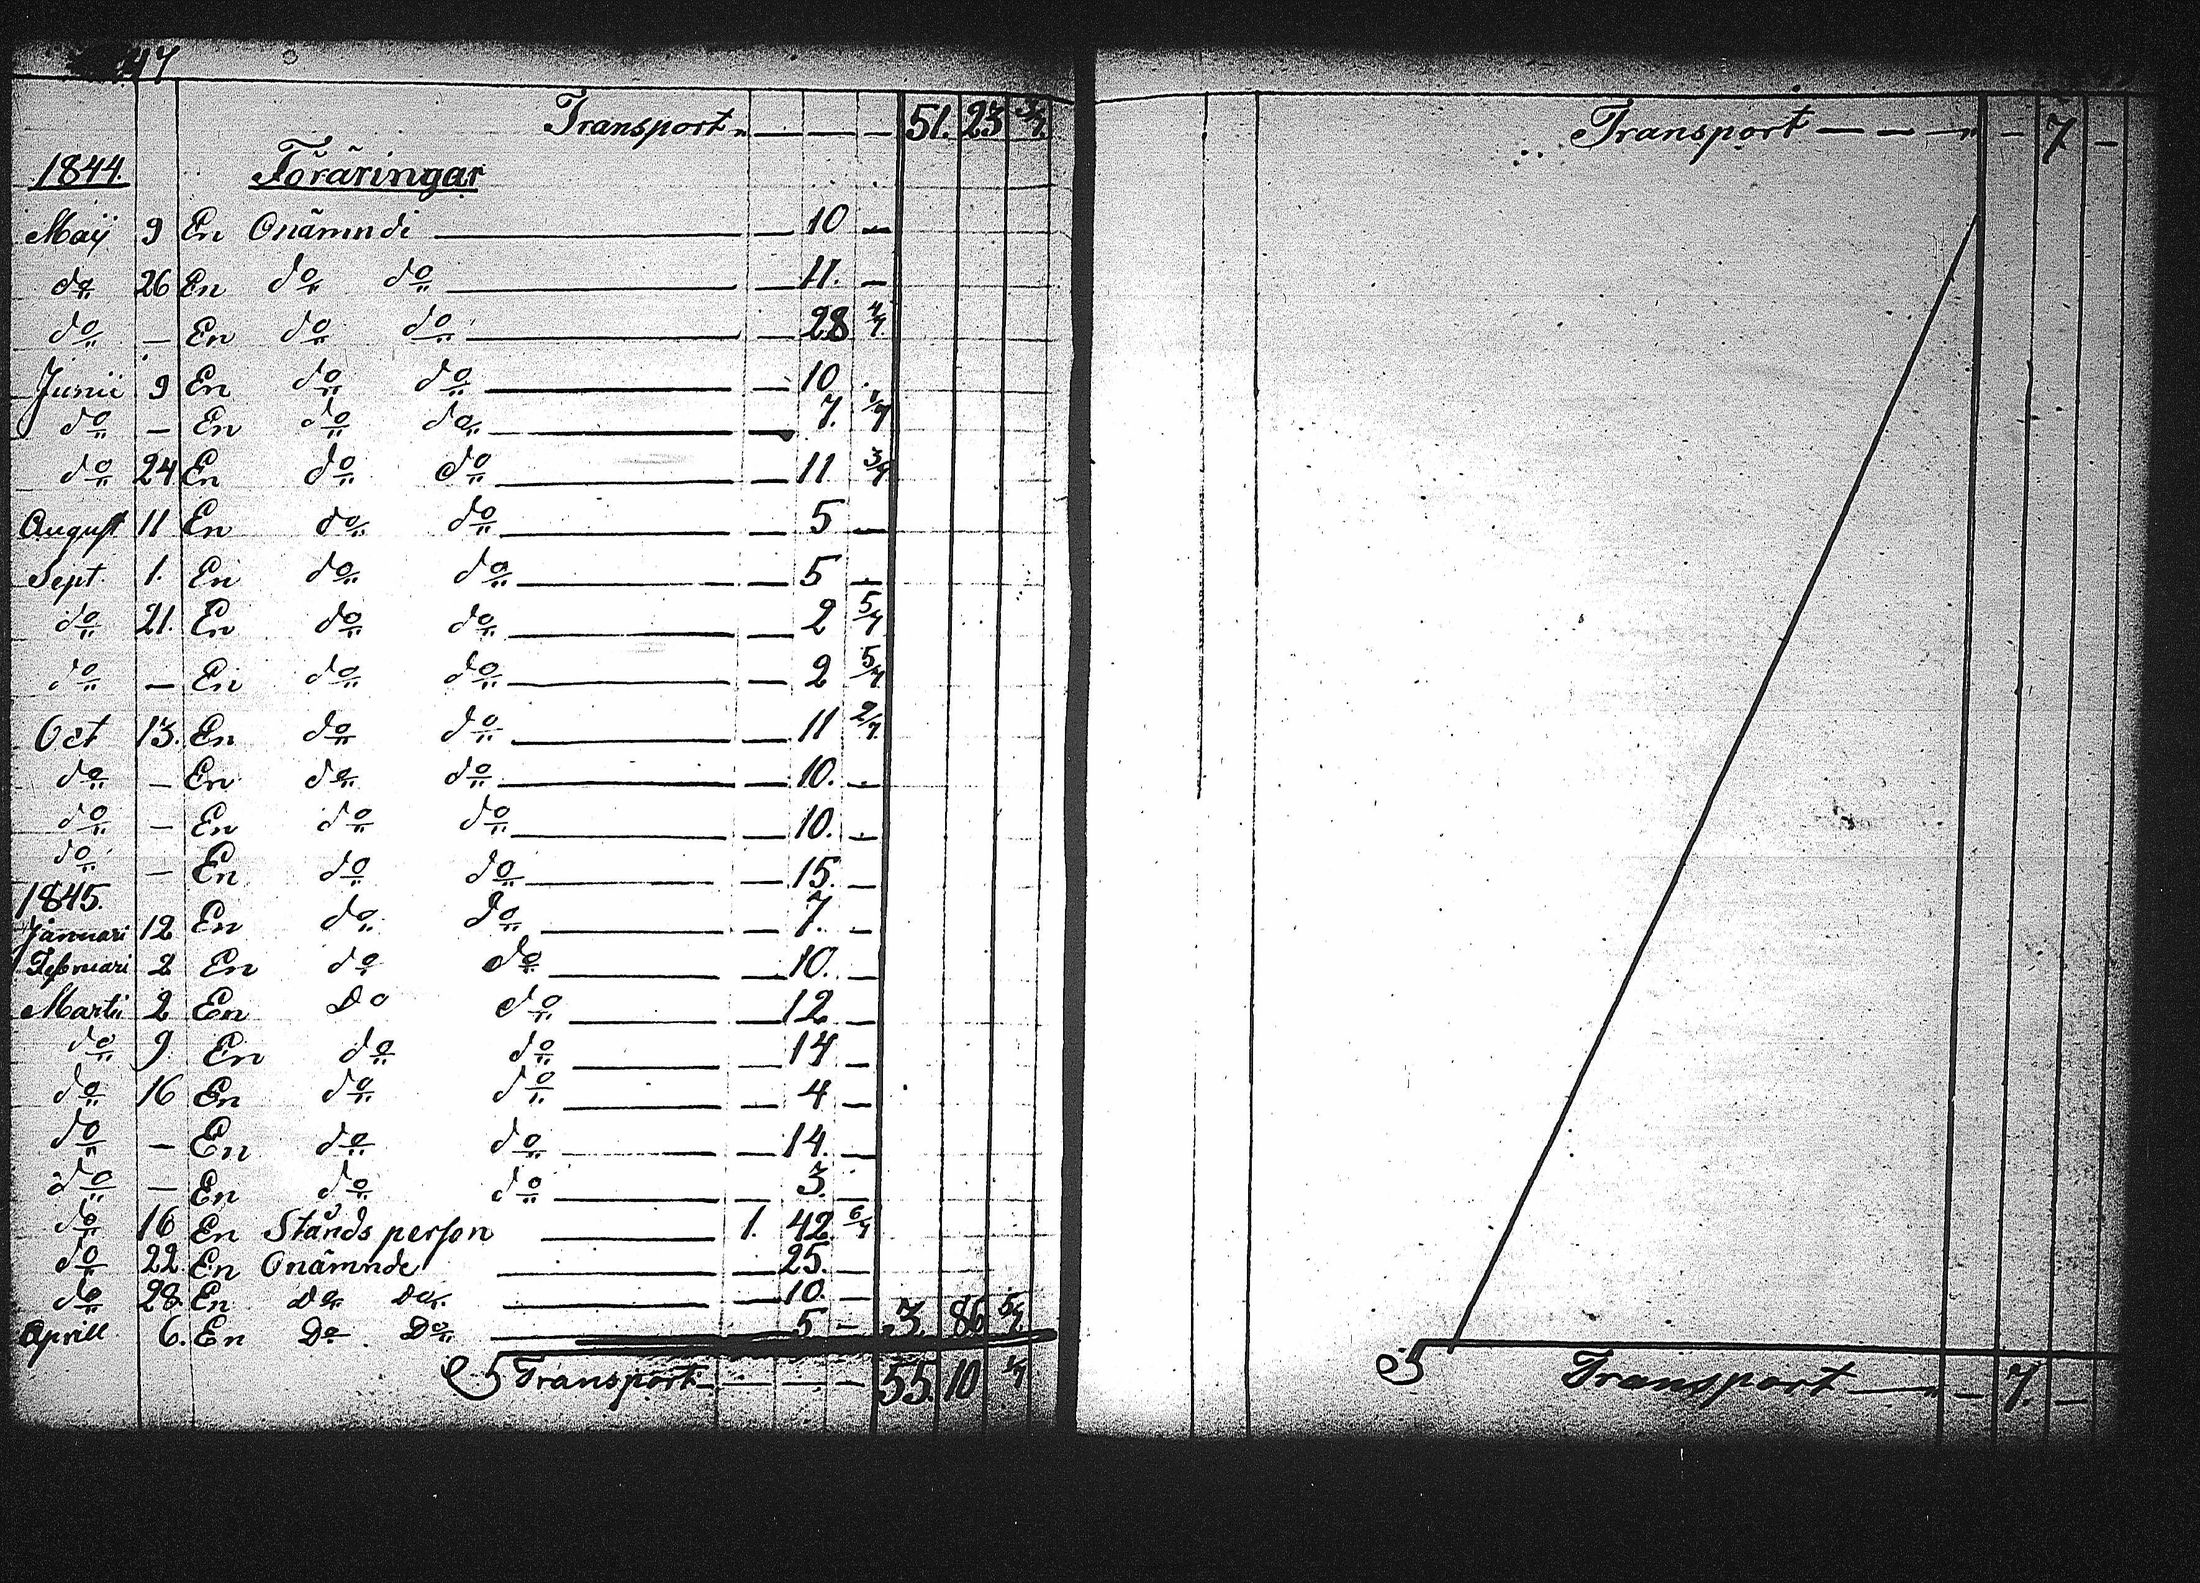 47
Transport 51. 23 3/7.
1844. Föräringar
Maij 9 En Onämndi 10 —
do 26 En do do 11. —
do — En do do 28 4/7.
Junii 9 En do do 10 .
do — En do do 7. 1/7
do 24 En do do 11 3/7
August 11 En do do 5 —
Sept. 1. En do do 5 —
do 21. En do do 2 5/7
do — En do do 2 5/7.
Oct 13. En do do 11 2/7.
do — En do do 10. —
do — En do do 10. —
do — En do do 15. —
1845.
Januari 12 En do do 7. —
Februari 2 En do do 10. —
Martii 2 En Do do 12 —
do 9 En do do 14 —
do 16 En do do 4 —
do — En do do 14. —
do — En do do 3. —
do 16 En Stånds person 1. 42 6/7
do 22. En Onämnde 25. —
do 28. En Do Do. 10. —
Aprill 6. En Do Do 5 — 3. 86 5/7
Transport 55. 10 1/7
Transport — 7 —
Transport — 7. —